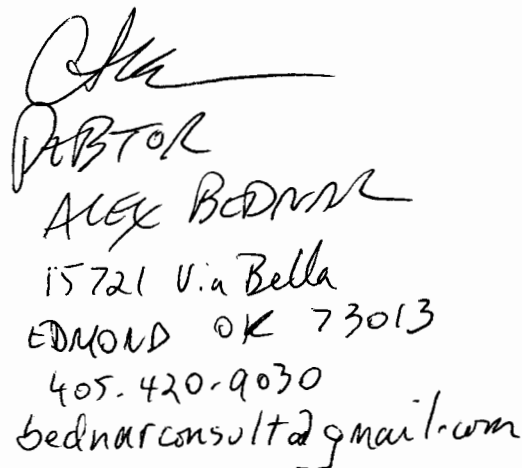 DEBTOR
ALEX BEDNAR
15721 Via Bella
EDMOND OK 73013
405-420-9030
bednarconsult@gmail.com